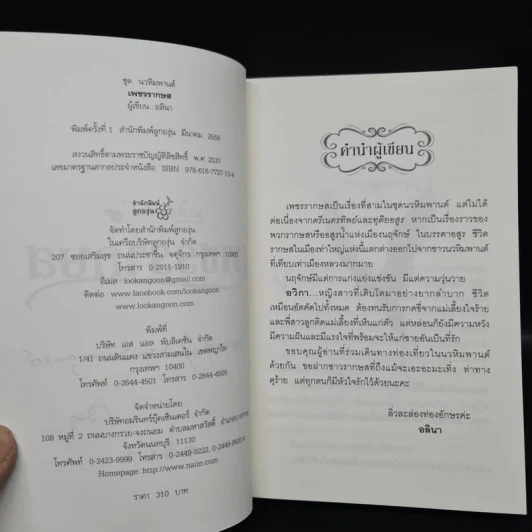 ชุด นวหิมพานต์
เพชรรากษส
ผู้เขียน : อลินา
พิมพ์ครั้งที่ 1 สำนักพิมพ์ลูกองุ่น มีนาคม 2559
สงวนลิขสิทธิ์ตามพระราชบัญญัติลิขสิทธิ์ พ.ศ. 2537
เลขมาตรฐานสากลประจำหนังสือ ISBN 978-616-7727-13-4
สำนักพิมพ์
ลูกองุ่น
จัดทำโดยสำนักพิมพ์ลูกองุ่น
ในเครือบริษัทลูกองุ่น จำกัด
207 ซอยเสริมสุข ถนนประชาชื่น จตุจักร กรุงเทพฯ
โทรสาร 0-2911-1910
อีเมล : lookangoon@gmail.com
ติดต่อ : www.facebook.com/lookangoon
www.lookangoon.com
พิมพ์ที่
บริษัท เอส แอล พับลิเคชั่น จำกัด
1/41 ถนนดินแดง แขวงสามเสนใน เขตพญาไท
กรุงเทพฯ 10400
โทรศัพท์ 0-2644-4501 โทรสาร 0-2644-4505
จัดจำหน่ายโดย
บริษัทอมรินทร์บุ๊คเซ็นเตอร์ จำกัด
108 หมู่ที่ 2 ถนนบางกรวย-จงถนอม ตำบลมหาสวัสดิ์ อำเภอบางกรวย
จังหวัดนนทบุรี 11130
โทรศัพท์ 0-2423-9999 โทรสาร 0-2449-9222,
Homepage: http://www.naiin.com
ราคา 310 บาท
คำนำผู้เขียน
เพชรรากษสเป็นเรื่องที่สามในชุดนวหิมพานต์ แต่ไม่ได้
ต่อเนื่องจากตรีเนตรทิพย์และทุติยอสูร หากเป็นเรื่องราวของ
พวกรากษสหรืออสูรน้ำแห่งเมืองนฤจักษ์ ในบรรดาอสูร ชีวิต
รากษสในเมืองท่าใหญ่แห่งนี้แตกต่างออกไปจากชาวนวหิมพานต์
ที่เทียบเท่าเมืองหลวงมากมาย
นฤจักษ์มีแต่การแก่งแย่งแข่งขัน มีแต่ความวุ่นวาย
อวิกา...หญิงสาวที่เติบโตมาอย่างยากลำบาก ชีวิต
เหมือนอัตคัดไปทั้งหมด ต้องทนรับการกดขี่จากแม่เลี้ยงใจร้าย
และพี่สาวลูกติดแม่เลี้ยงที่เห็นแก่ตัว แต่หล่อนก็ยังมีความหวัง
มีความฝันและมีแรงใจที่พร้อมจะให้แก่ชายอันเป็นที่รัก
ขอบคุณผู้อ่านที่ร่วมเดินทางท่องเที่ยวในนวหิมพานต์
ด้วยกัน ขอฝากชาวรากษสที่ถึงแม้จะเอะอะมะเทิ่ง ท่าทาง
ดุร้าย แต่ทุกคนก็มีหัวใจรักไว้ด้วยนะคะ
ลิ่วละล่องท่องอักษรค่ะ
อลินา